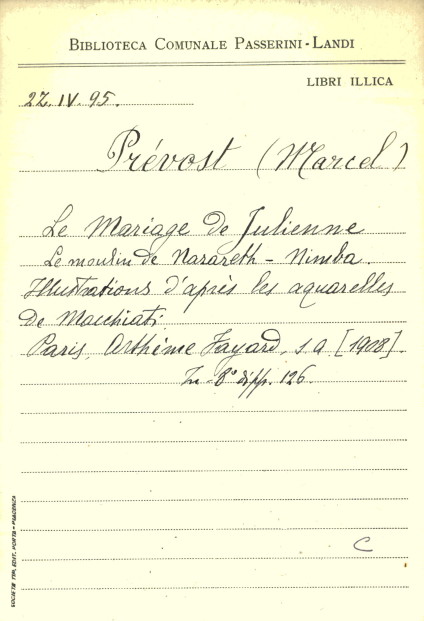 BIBLIOTECA COMUNALE PASSERINI-LANDI
LIBRI ILLICA
2Z. IV. 95.
Prévost (Marcel)
Le Mariage de Julienne
Le moulin de Nazareth - Nimba.
Illustrations d'après les aquarelles
De Macchiati
Paris, Arthème Fayard, s a [1908].
In-8° di pp. 126.
C